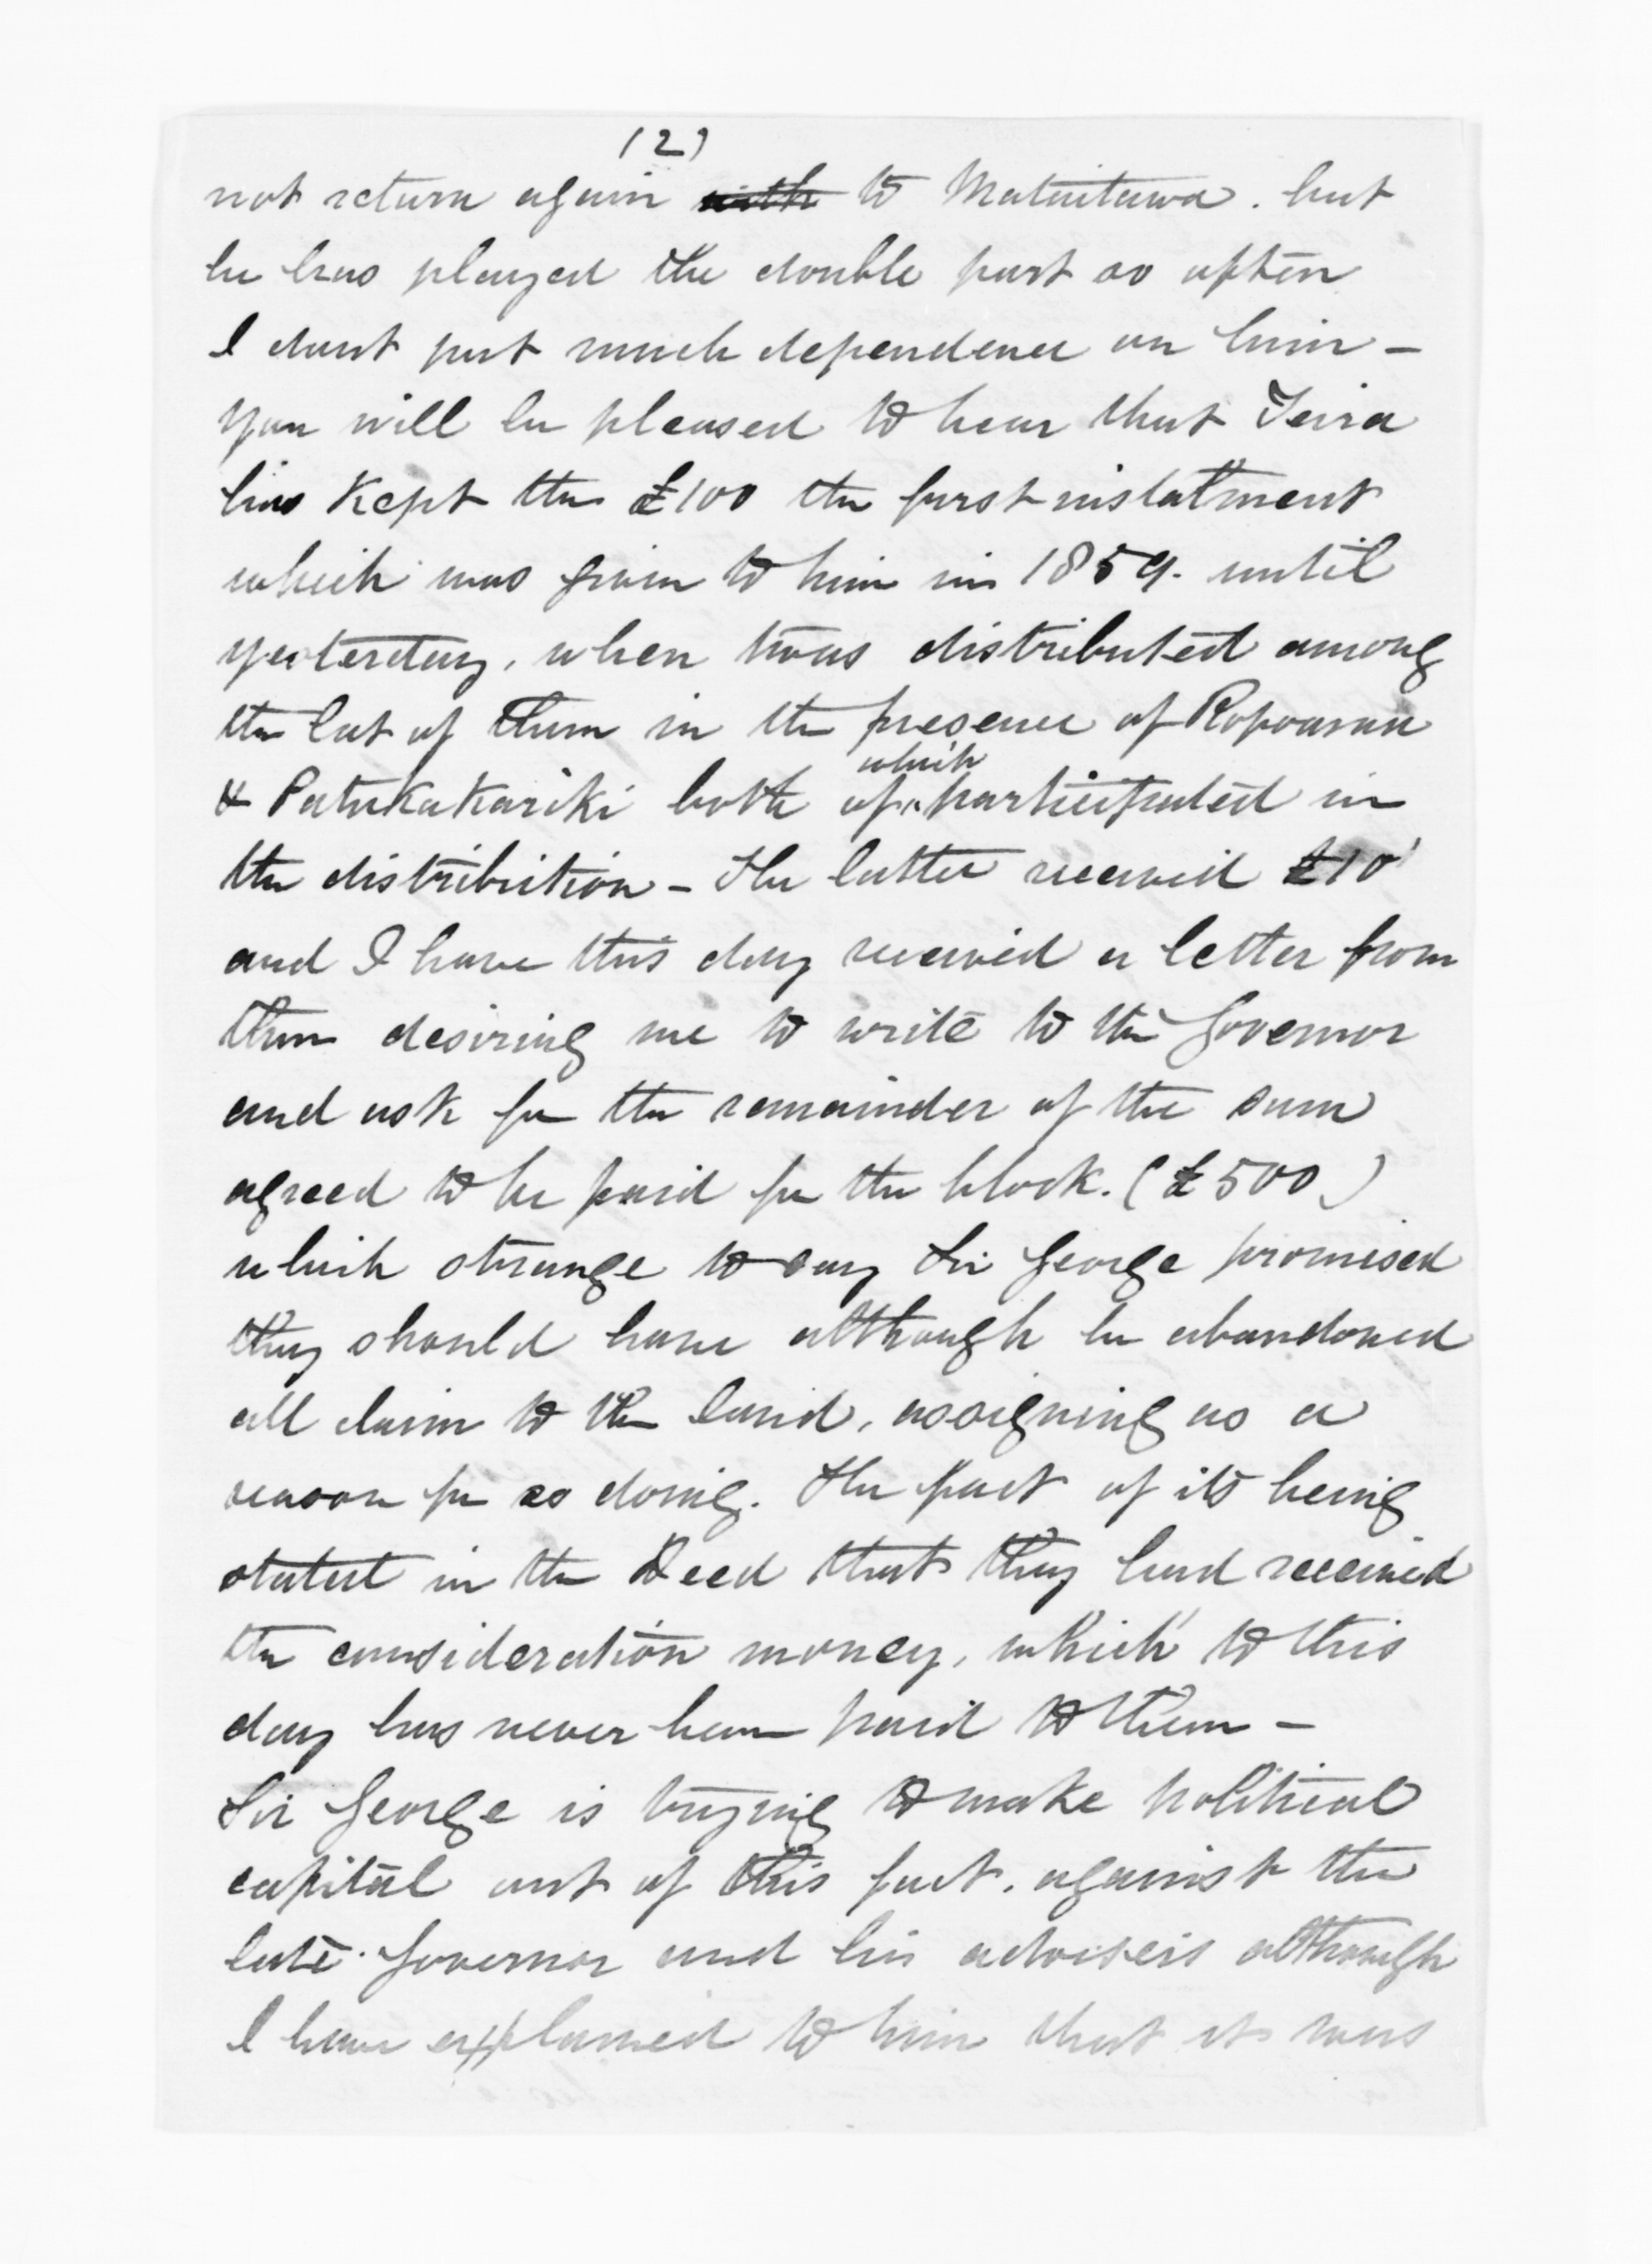 (2)
not return again with to Mataitawa. but
he has played the double part so often
I dont put much dependence on him –
You will be pleased to hear that Teira
has kept the £100 the first instalment
which was given to him in 1859. until
yesterday, when twas distributed among
the lot of them in the presence of Ropoama
which
& Patukakariki both of participated in
the distribution – The latter received £10
and I have this day received a letter from
them desiring me to write to the Governor
and ask for the remainder of the sum
agreed to be paid for the block. (£500)
which strange to say Sir George promised
they should have although he abandoned
all claim to the land, assigning as a
reason for so doing. The fact of its being
stated in the Deed that they had received
the consideration money, which to this
day has never been paid to them –
Sir George is trying to make political
capital out of this fact. against the
late Governor and his advisers although
I have explained to him that it was